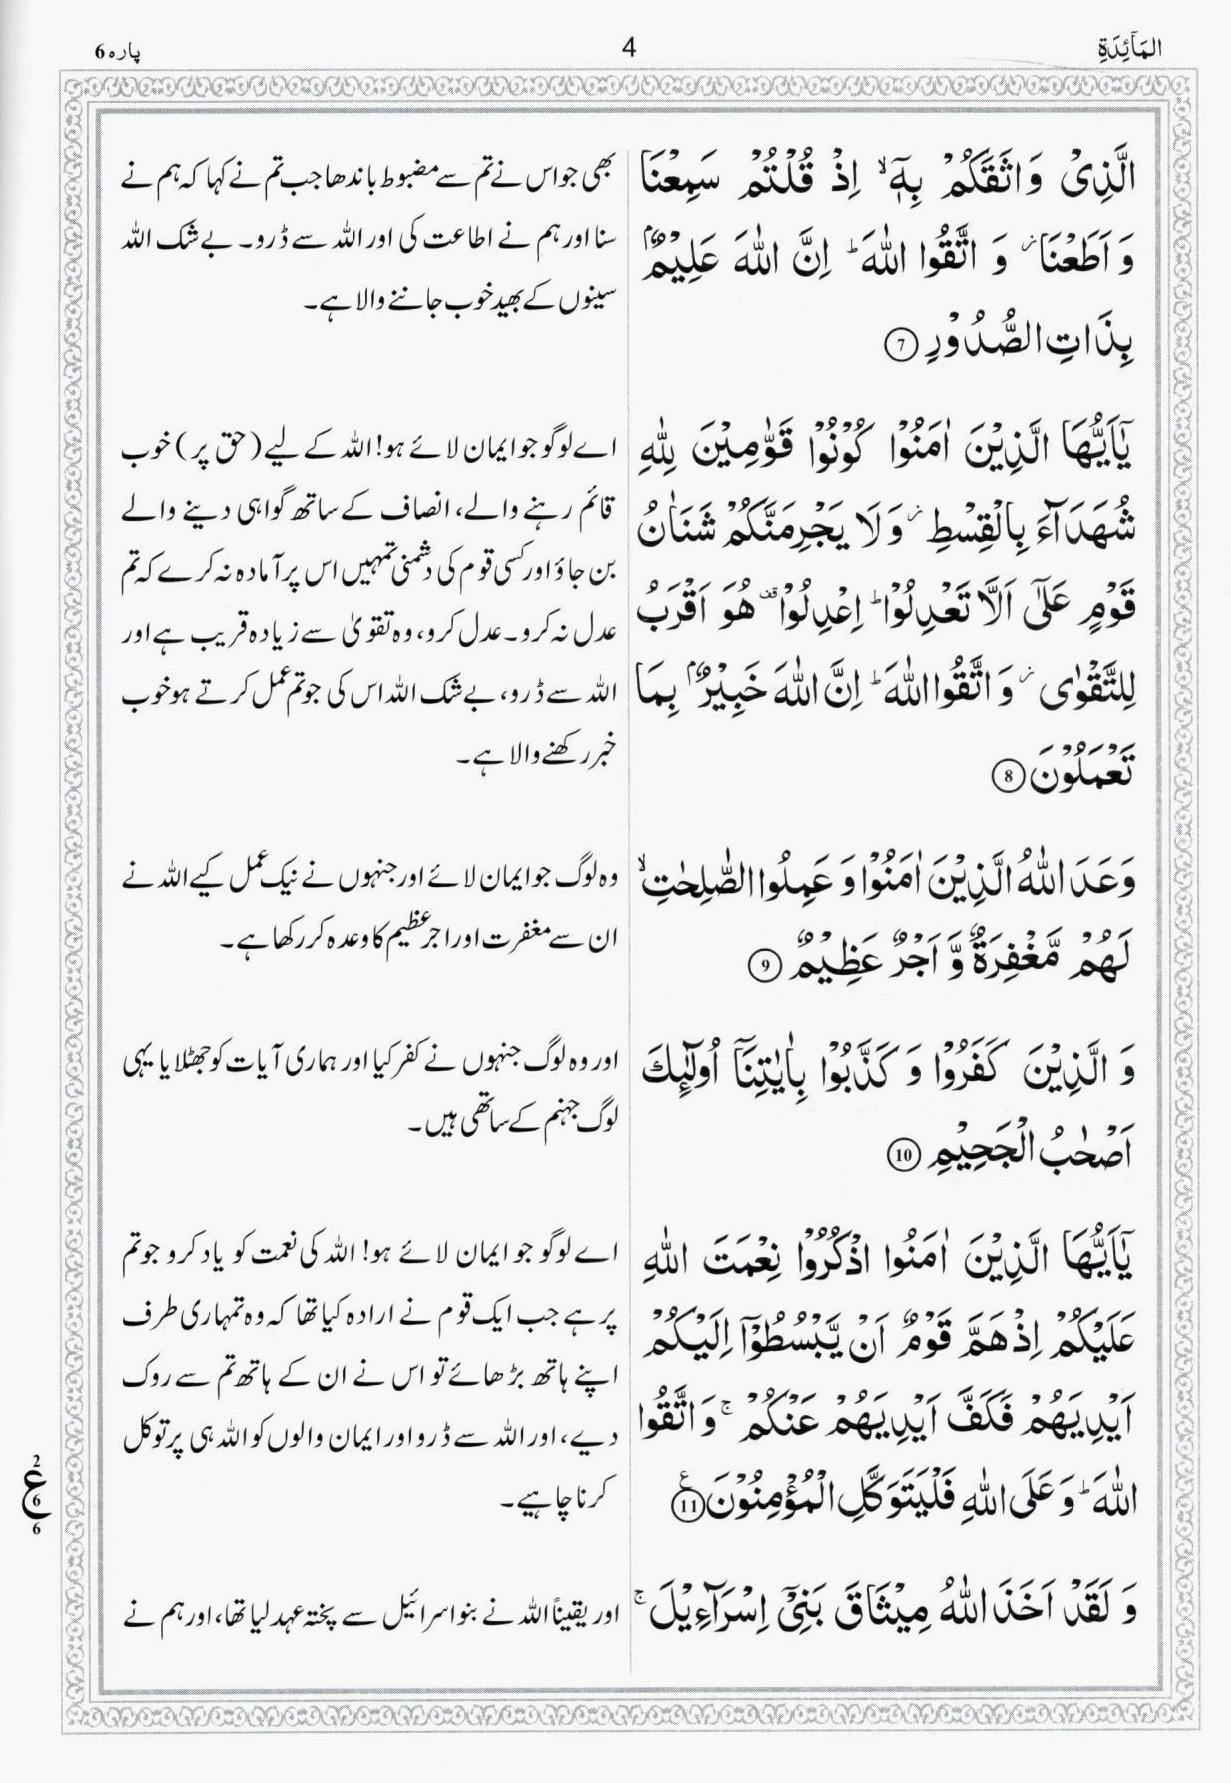 المَآئِدَةِ
4
پارہ 6
الَّذِیْ وَاثَقَکُمْ بِهٖۤ ۙ اِذْ قُلْتُمْ سَمِعْنَا
وَ اَطَعْنَا ؗ وَ اتَّقُوا اللّٰهَ ؕ اِنَّ اللّٰهَ عَلِیْمٌۢ
بِذَاتِ الصُّدُوْرِ 7
یٰۤاَیُّهَا الَّذِیْنَ اٰمَنُوْا کُوْنُوْا قَوّٰمِیْنَ لِلّٰهِ
شُهَدَآءَ بِالْقِسْطِ ؗ وَ لَا یَجْرِمَنَّکُمْ شَنَاٰنُ
قَوْمٍ عَلٰۤی اَلَّا تَعْدِلُوْا ؕ اِعْدِلُوْا ۫ هُوَ اَقْرَبُ
لِلتَّقْوٰی ؗ وَ اتَّقُوا اللّٰهَ ؕ اِنَّ اللّٰهَ خَبِیْرٌۢ بِمَا
تَعْمَلُوْنَ 8
وَعَدَ اللّٰهُ الَّذِیْنَ اٰمَنُوْا وَ عَمِلُوا الصّٰلِحٰتِ ۙ
لَهُمْ مَّغْفِرَةٌ وَّ اَجْرٌ عَظِیْمٌ 9
وَ الَّذِیْنَ کَفَرُوْا وَ کَذَّبُوْا بِاٰیٰتِنَاۤ اُولٰٓئِكَ
اَصْحٰبُ الْجَحِیْمِ 10
یٰۤاَیُّهَا الَّذِیْنَ اٰمَنُوا اذْکُرُوْا نِعْمَتَ اللّٰهِ
عَلَیْکُمْ اِذْ هَمَّ قَوْمٌ اَنْ یَّبْسُطُوْۤا اِلَیْکُمْ
اَیْدِیَهُمْ فَکَفَّ اَیْدِیَهُمْ عَنْکُمْ ۚ وَ اتَّقُوا
اللّٰهَ ؕ وَ عَلَی اللّٰهِ فَلْیَتَوَکَّلِ الْمُؤْمِنُوْنَ 11 ع
وَ لَقَدْ اَخَذَ اللّٰهُ مِیْثَاقَ بَنِیْۤ اِسْرَآءِیْلَ ۚ
بھی جو اس نے تم سے مضبوط باندھا جب تم نے کہا کہ ہم نے
سنا اور ہم نے اطاعت کی اور اللہ سے ڈرو۔ بے شک اللہ
سینوں کے بھید خوب جاننے والا ہے۔
اے لوگو جو ایمان لائے ہو! اللہ کے لیے (حق پر) خوب
قائم رہنے والے، انصاف کے ساتھ گواہی دینے والے
بن جاؤ اور کسی قوم کی دشمنی تمہیں اس پر آمادہ نہ کرے کہ تم
عدل نہ کرو۔ عدل کرو، وہ تقویٰ سے زیادہ قریب ہے اور
اللہ سے ڈرو، بے شک اللہ اس کی جو تم عمل کرتے ہو خوب
خبر رکھنے والا ہے۔
وہ لوگ جو ایمان لائے اور جنہوں نے نیک عمل کیے اللہ نے
ان سے مغفرت اور اجرِ عظیم کا وعدہ کر رکھا ہے۔
اور وہ لوگ جنہوں نے کفر کیا اور ہماری آیات کو جھٹلایا یہی
لوگ جہنم کے ساتھی ہیں۔
اے لوگو جو ایمان لائے ہو! اللہ کی نعمت کو یاد کرو جو تم
پر ہے جب ایک قوم نے ارادہ کیا تھا کہ وہ تمہاری طرف
اپنے ہاتھ بڑھائے تو اس نے ان کے ہاتھ تم سے روک
دیے، اور اللہ سے ڈرو اور ایمان والوں کو اللہ ہی پر توکل
کرنا چاہیے۔
اور یقیناً اللہ نے بنو اسرائیل سے پختہ عہد لیا تھا، اور ہم نے
2
ع 6
6